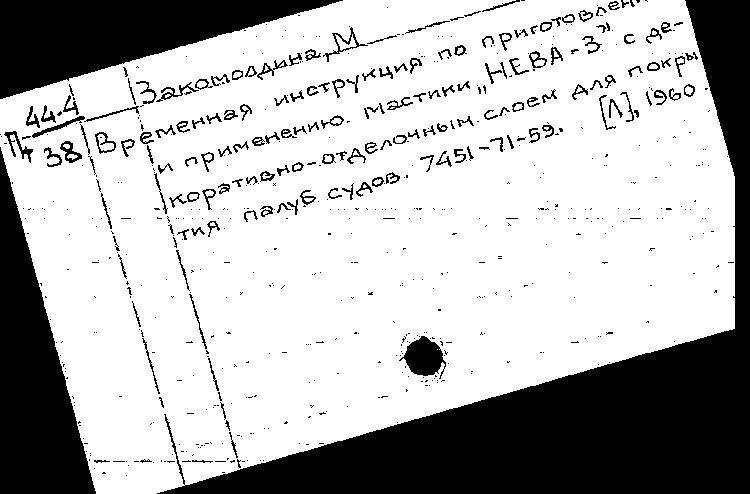 44.4
П₁ 38
Закомолдина, М
Временная инструкция по приготовлени
и применению мастики „НЕВА-3" с де-
коративно-отделочным слоем для покры
тия палуб судов. 7451-71-59. [Л], 1960.